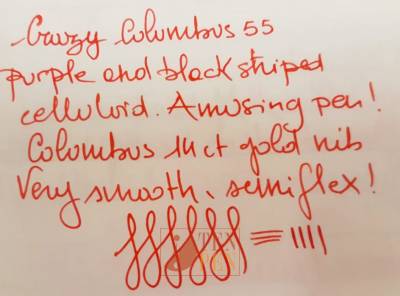 Crazy Columbus 55
purple and black striped
celluloid. Amusing pen!
Columbus 14 ct gold nib
Very smooth, semiflex!
TEN
PEN